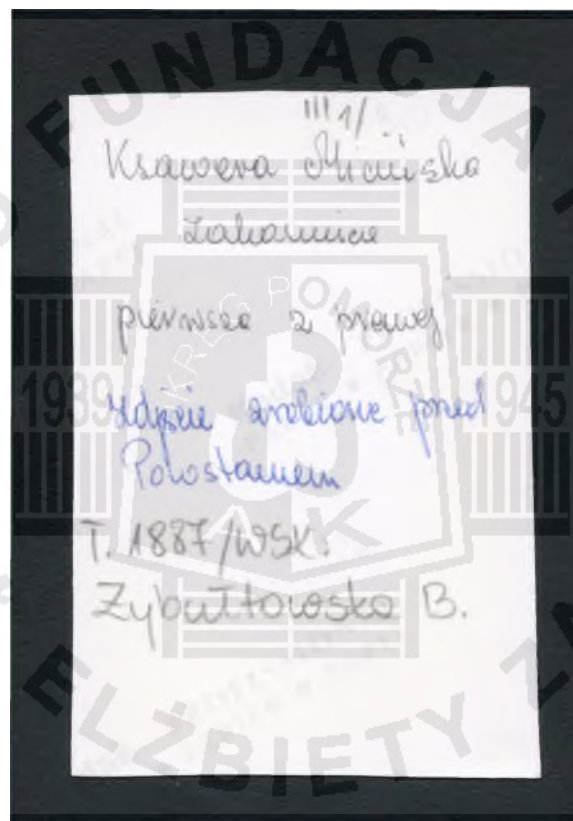 FUNDACJA
III 1/
Ksawera Micińska
pierwsza z prawej
zdjęcie zrobione przed
Powstaniem
T. 1887/WSK.
Zybułtowska B.
OKRĘG POMORZE
1939
1945
3
AK
ELŻBIETY